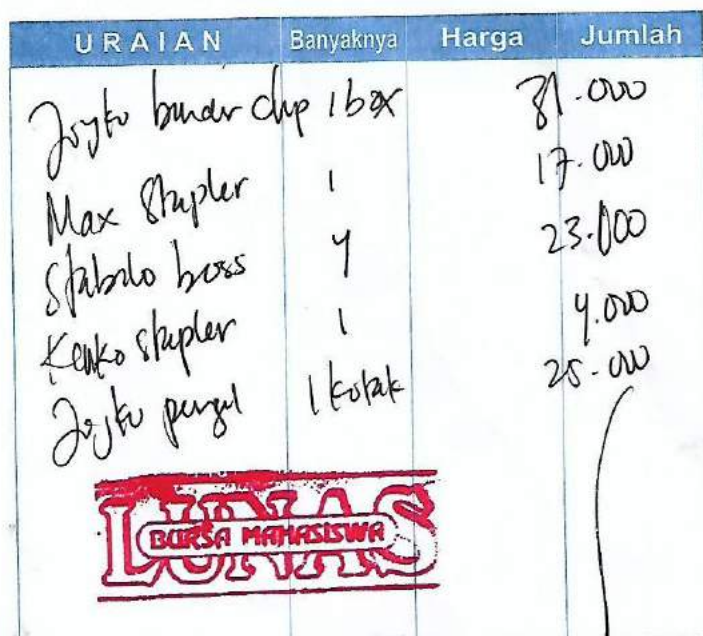 URAIAN Banyaknya Harga Jumlah
Joyko binder clip 1 box 31.000
Max Stapler 1 17.000
Stabilo boss 4 23.000
Kenko stapler 1 4.000
Joyko 1 kotak 25.000
LUNAS
BURSA MAHASISWA